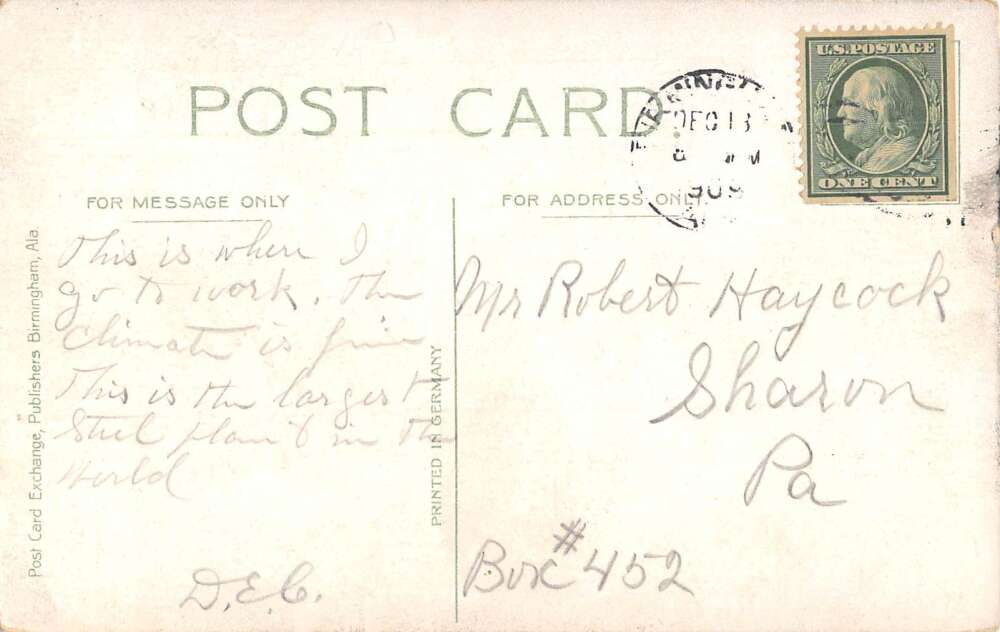 POST CARD.
U.S. POSTAGE
ONE CENT
DEC 13
M
909
FOR MESSAGE ONLY
FOR ADDRESS ONLY.
This is where I
go to work. The
Climate is fine
This is the largest
Steel plant in the
World
D.E.C.
Mr Robert Haycock
Sharon
Pa
Box #452
PRINTED IN GERMANY
Post Card Exchange, Publishers Birmingham, Ala